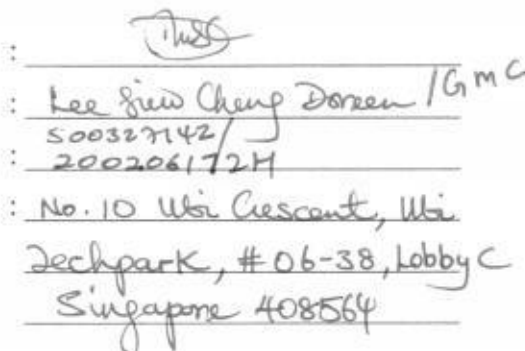 :
: Lee Siew Cheng Doreen / GMC
S0032714Z/
: 200206172H
: No. 10 Ubi Crescent, Ubi
Techpark, #06-38, Lobby C
Singapore 408564